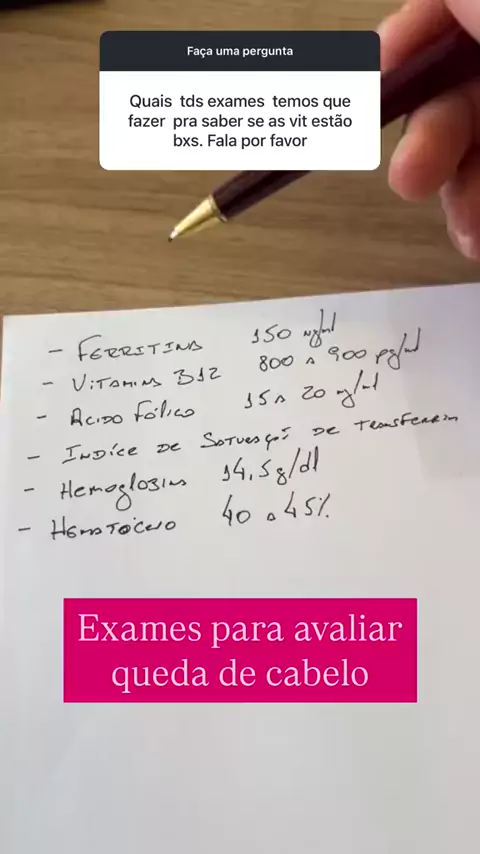 Faça uma pergunta
Quais tds exames temos que
fazer pra saber se as vit estão
bxs. Fala por favor
- FERRITINA 150 ng/ml
- VITAMINA B12 800 A 900 pg/ml
- ÁCIDO FÓLICO 15 A 20 ng/ml
- ÍNDICE DE SATURAÇÃO DE TRANSFERRINA
- HEMOGLOBINA 14,5g/dl
- HEMATÓCRITO 40 A 45%
Exames para avaliar
queda de cabelo